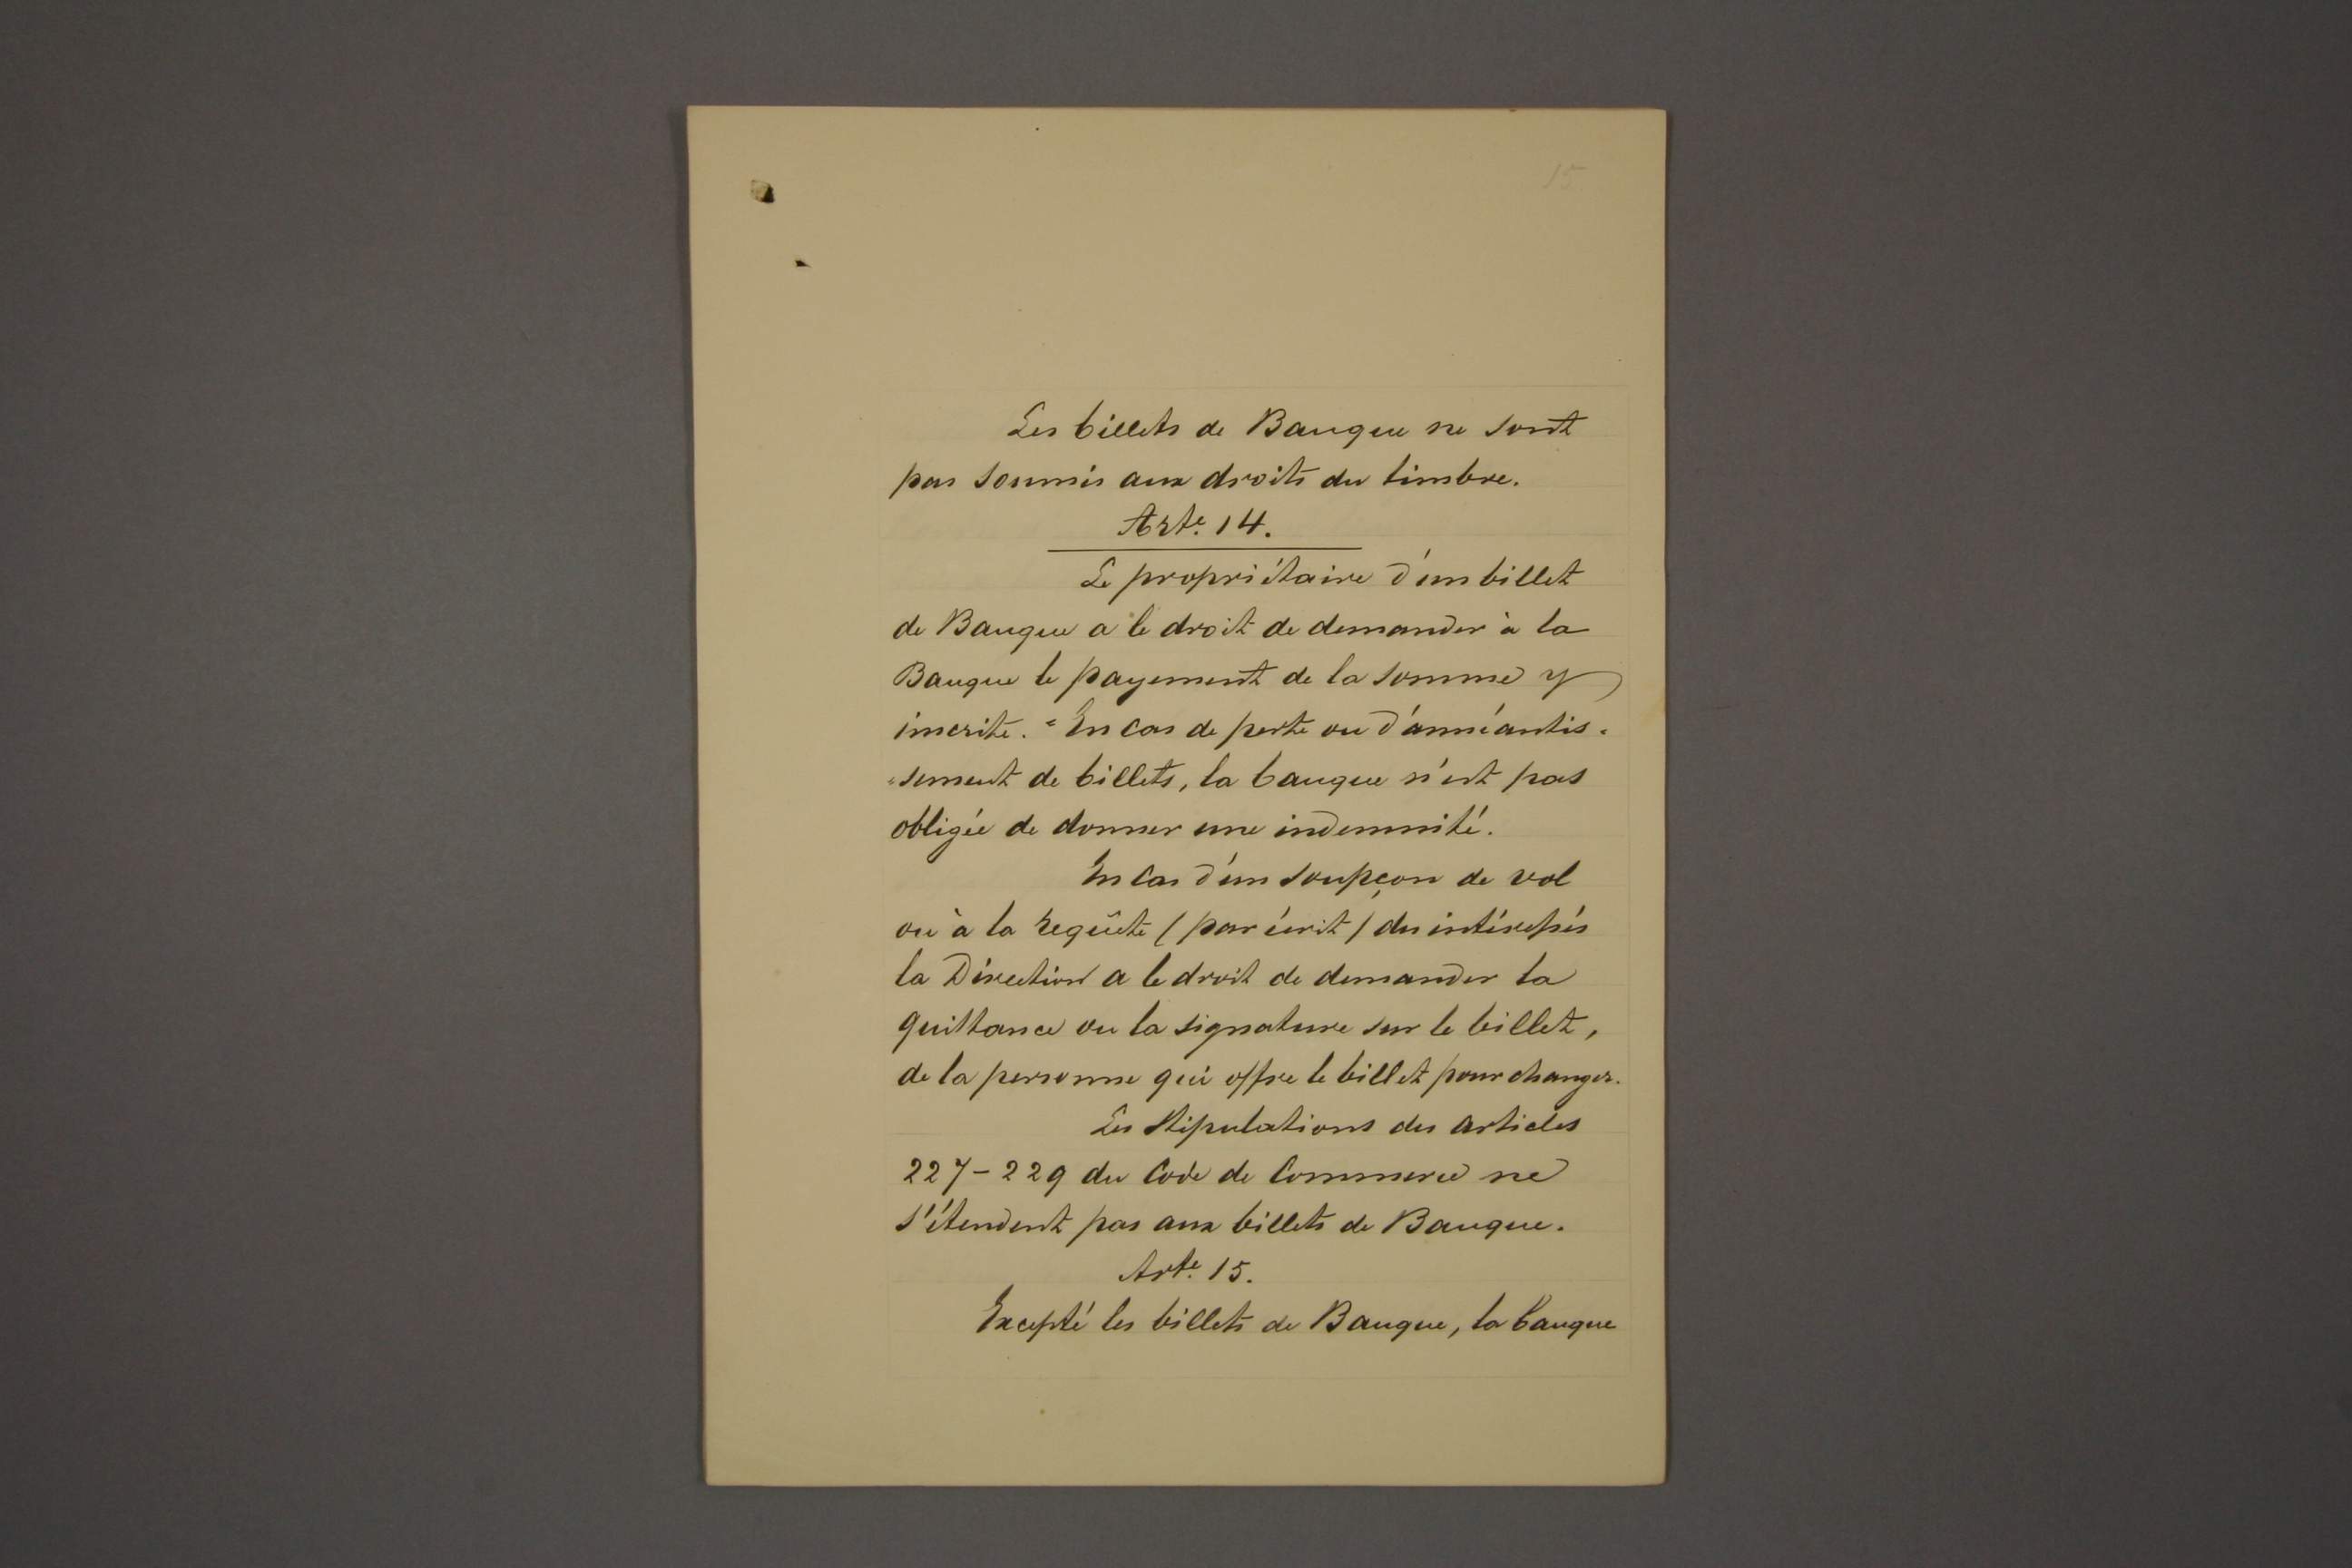 15
Les billets de Banque ne sont
pas soumis aux droits du timbre.
Arte. 14.
Le propriétaire d'un billet
de Banque a le droit de demander à la
Banque le payement de la somme y
inscrite. = En cas de perte ou d'annéantis=
=sement de billets, la banque n'est pas
obligée de donner une indemnité.
En cas d'un soupçon de vol
ou à la requête (par écrit) des intéressés
la Direction a le droit de demander la
quittance ou la signature sur le billet,
de la personne qui offre le billet pour changer.
Les Stipulations des articles
227-229 du Code de Commerce ne
s'étendent pas aux billets de Banque.
Arte. 15.
Excepté les billets de Banque, la banque